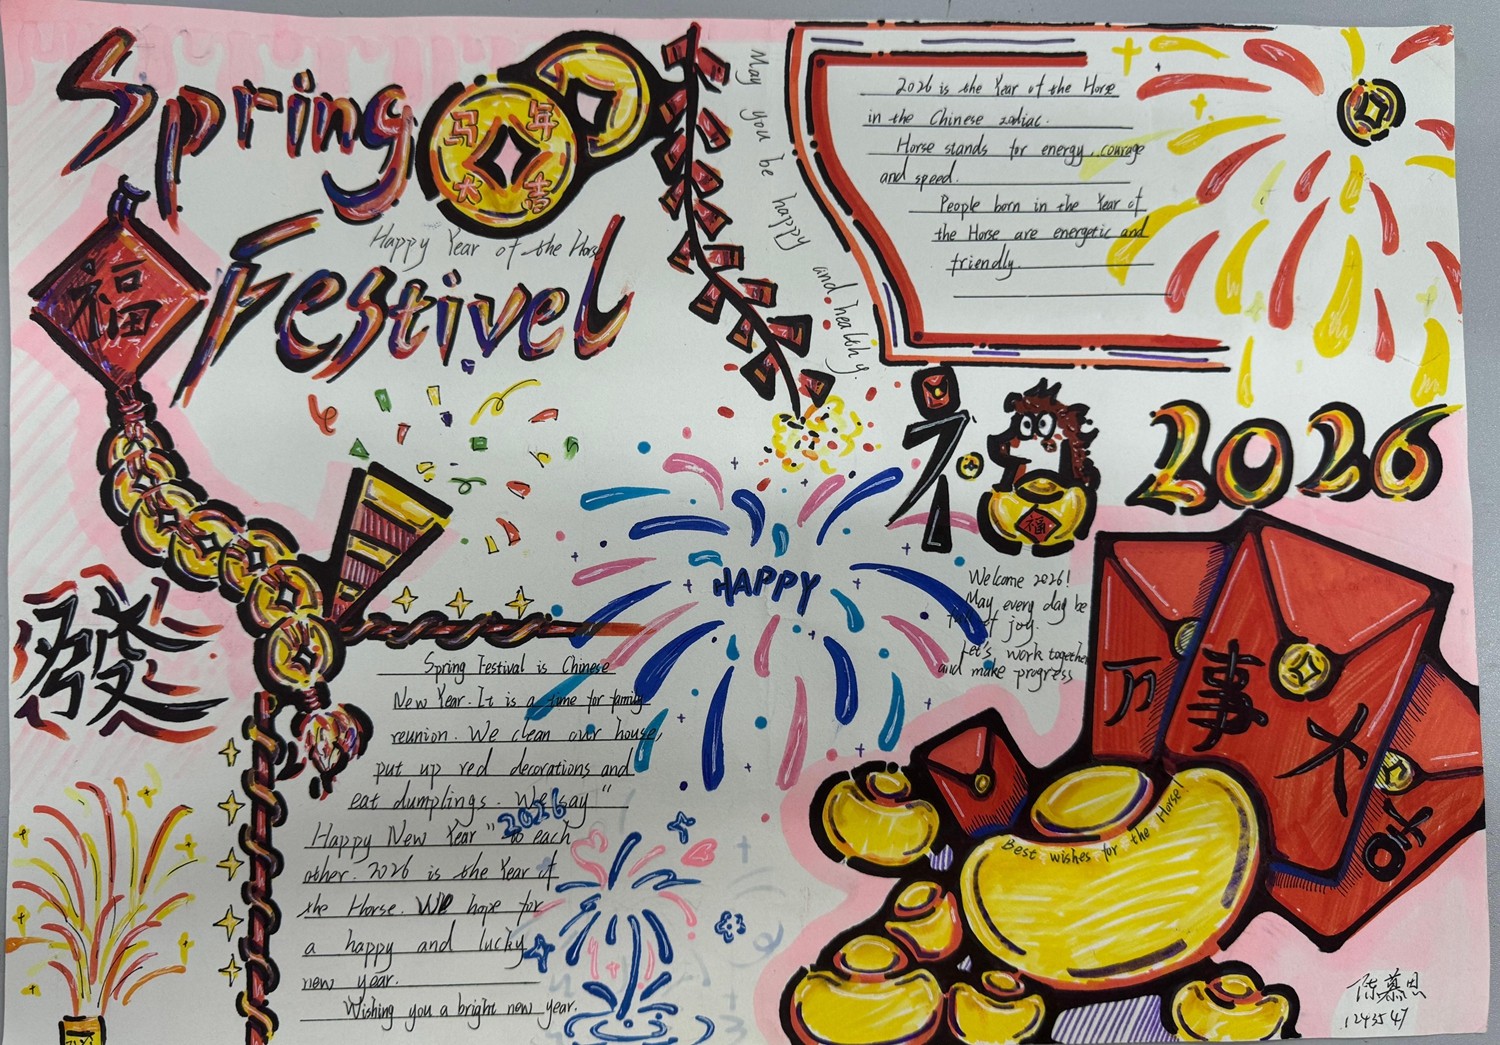 Spring
Festivel
马年大吉
Happy Year of the Horse
福
May you be happy and healthy.
2026 is the Year of the Horse
in the Chinese zodiac.
Horse stands for energy, courage
and speed.
People born in the Year of
the Horse are energetic and
friendly.
2026
福
發
HAPPY
Welcome 2026!
May every day be
of joy.
Let's work together
and make progress
万事大
OK
Best wishes for the Horse!
Spring Festival is Chinese
New Year. It is a time for family
reunion. We clean our house,
put up red decorations and
eat dumplings. We say "
Happy New Year" to each
other. 2026 is the Year of
the Horse. We hope for
a happy and lucky
new year.
Wishing you a bright new year.
2026
陈慕恩
1243547